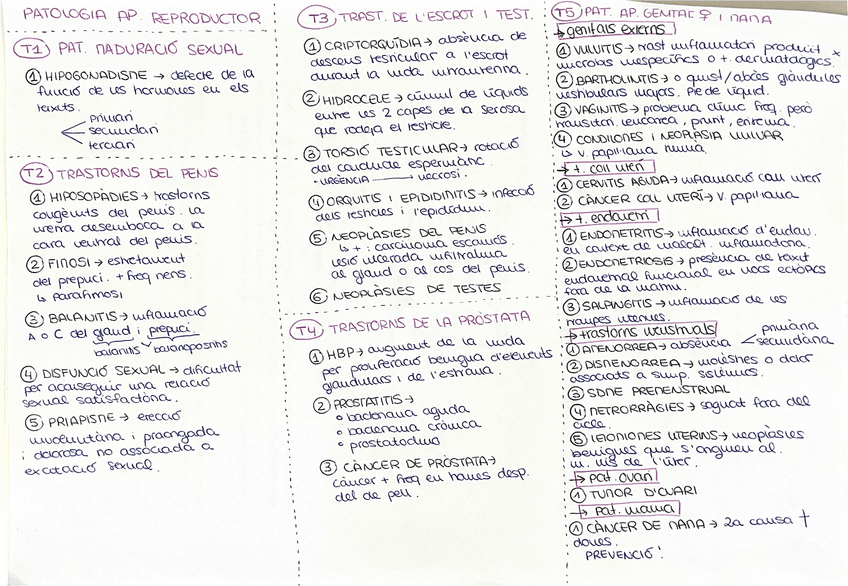 PATOLOGIA AP. REPRODUCTOR
T1 PAT. MADURACIÓ SEXUAL
① HIPOGONADISME → defecte de la
funció de les hormones en els
teixits.
primari
secundari
terciari
T2 TRASTORNS DEL PENIS
① HIPOSOPÀDIES → trastorns
congènits del penis. La
uretra desemboca a la
cara ventral del penis.
② FIMOSI → estretament
del prepuci. + freq nens.
↳ parafimosi
③ BALANITIS → inflamació
A o C del gland i prepuci.
balanitis balanopositis
④ DISFUNCIÓ SEXUAL → dificultat
per aconseguir una relació
sexual satisfactòria.
⑤ PRIAPISME → erecció
involuntària i prolongada
i dolorosa no associada a
excitació sexual.
T3 TRAST. DE L'ESCROT I TEST.
① CRIPTORQUÍDIA → absència de
descens testicular a l'escrot
durant la vida intrauterina.
② HIDROCELE → cúmul de líquids
entre les 2 capes de la serosa
que rodeja el testicle.
③ TORSIÓ TESTICULAR → rotació
del conducte espermàtic.
· URGÈNCIA → necrosi.
④ ORQUITIS I EPIDIDIMITIS → infecció
dels testicles i l'epidídim.
⑤ NEOPLÀSIES DEL PENIS
↳ + : carcinoma escamós.
lesió ulcerada infiltrativa
al gland o al cos del penis.
⑥ NEOPLÀSIES DE TESTES
T4 TRASTORNS DE LA PRÒSTATA
① HBP → augment de la mida
per proliferació benigna d'elements
glandulars i de l'estroma.
② PROSTATITIS →
∘ bacteriana aguda
∘ bacteriana crònica
∘ prostatodinia
③ CÀNCER DE PRÒSTATA →
càncer + freq en homes desp.
del de pell.
T5 PAT. AP. GENITAL ♀ I MAMA
→ genitals externs
① VULVITIS → trast inflamatori produït x
microbis inespecífics o + dermatològics.
② BARTHOLINITIS → o quist/abcés glàndules
vestibulars majors. Ple de líquid.
③ VAGINITIS → problema clínic freq. però
transitori. leucorrea, prurit, eritema.
④ CONDILOMES I NEOPLÀSIA VULVAR
↳ v. papiloma humà
→ t. coll uterí
① CERVITIS AGUDA → inflamació coll uterí
② CÀNCER COLL UTERÍ → v. papiloma
→ t. endometri
① ENDOMETRITIS → inflamació d'endom.
en context de malalt. inflamatòria.
② ENDOMETRIOSIS → presència de teixit
endometrial funcional en llocs ectòpics
fora de la matriu.
③ SALPINGITIS → inflamació de les
trompes uterines.
→ trastorns menstruals
① AMENORREA → absència
primària
secundària
② DISMENORREA → molèsties o dolor
associats a símp. sistèmics.
③ SDME PREMENSTRUAL
④ METRORRÀGIES → sagnat fora del
cicle.
⑤ LEIOMIOMES UTERINS → neoplàsies
benignes que s'originen al
m. llis de l'úter.
→ Pat. ovari
① TUMOR D'OVARI
→ Pat. mama
① CÀNCER DE MAMA → 2a causa †
dones.
PREVENCIÓ!